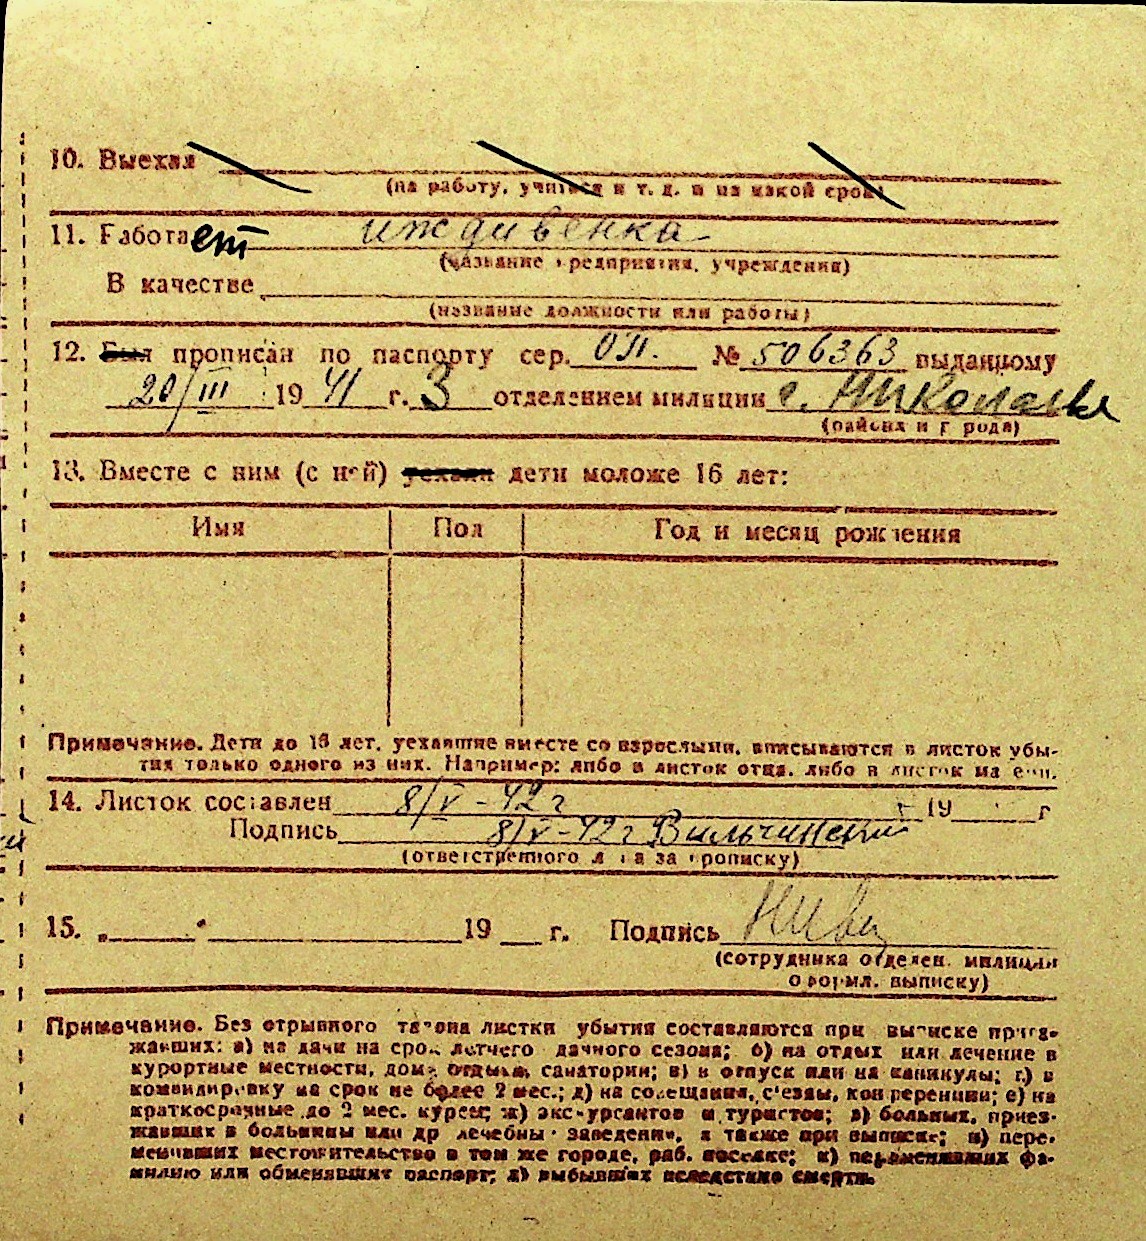 10. Выехал
(на работу, учиться и т. д. и на какой срок)
11. Работает иждивенка
(название предприятия, учреждения)
В качестве
(название должности или работы)
12. Был прописан по паспорту сер. ОП. № 506363 выданному
20/III 1941 г. 3 отделением милиции г. Николаева
(района и города)
13. Вместе с ним (с ней) уехали дети моложе 16 лет:
Имя Пол Год и месяц рождения
Примечание. Дети до 16 лет, уехавшие вместе со взрослыми, вписываются в листок убы-
тия только одного из них. Например: либо в листок отца, либо в листок матери.
14. Листок составлен 8/V-42 г 19 г
Подпись 8/V-42 г Вильчинский
(ответственного лица за прописку)
15. „ " 19 г. Подпись
(сотрудника отделен. милиции
оформл. выписку)
Примечание. Без отрывного талона листки убытия составляются при выписке приез-
жавших: а) на дачи на срок летнего дачного сезона; б) на отдых или лечение в
курортные местности, дома отдыха, санатории; в) в отпуск или на каникулы; г) в
командировку на срок не более 2 мес.; д) на совещания, с'езды, конференции; е) на
краткосрочные до 2 мес. курсы; ж) экскурсантов и туристов; з) больных, приез-
жавших в больницы или др лечебны заведения, а также при выписке; и) пере-
менивших местожительство в том же городе, раб. поселке; к) переменивших фа-
милию или обменявших паспорт; л) выбывших вследствие смерти.